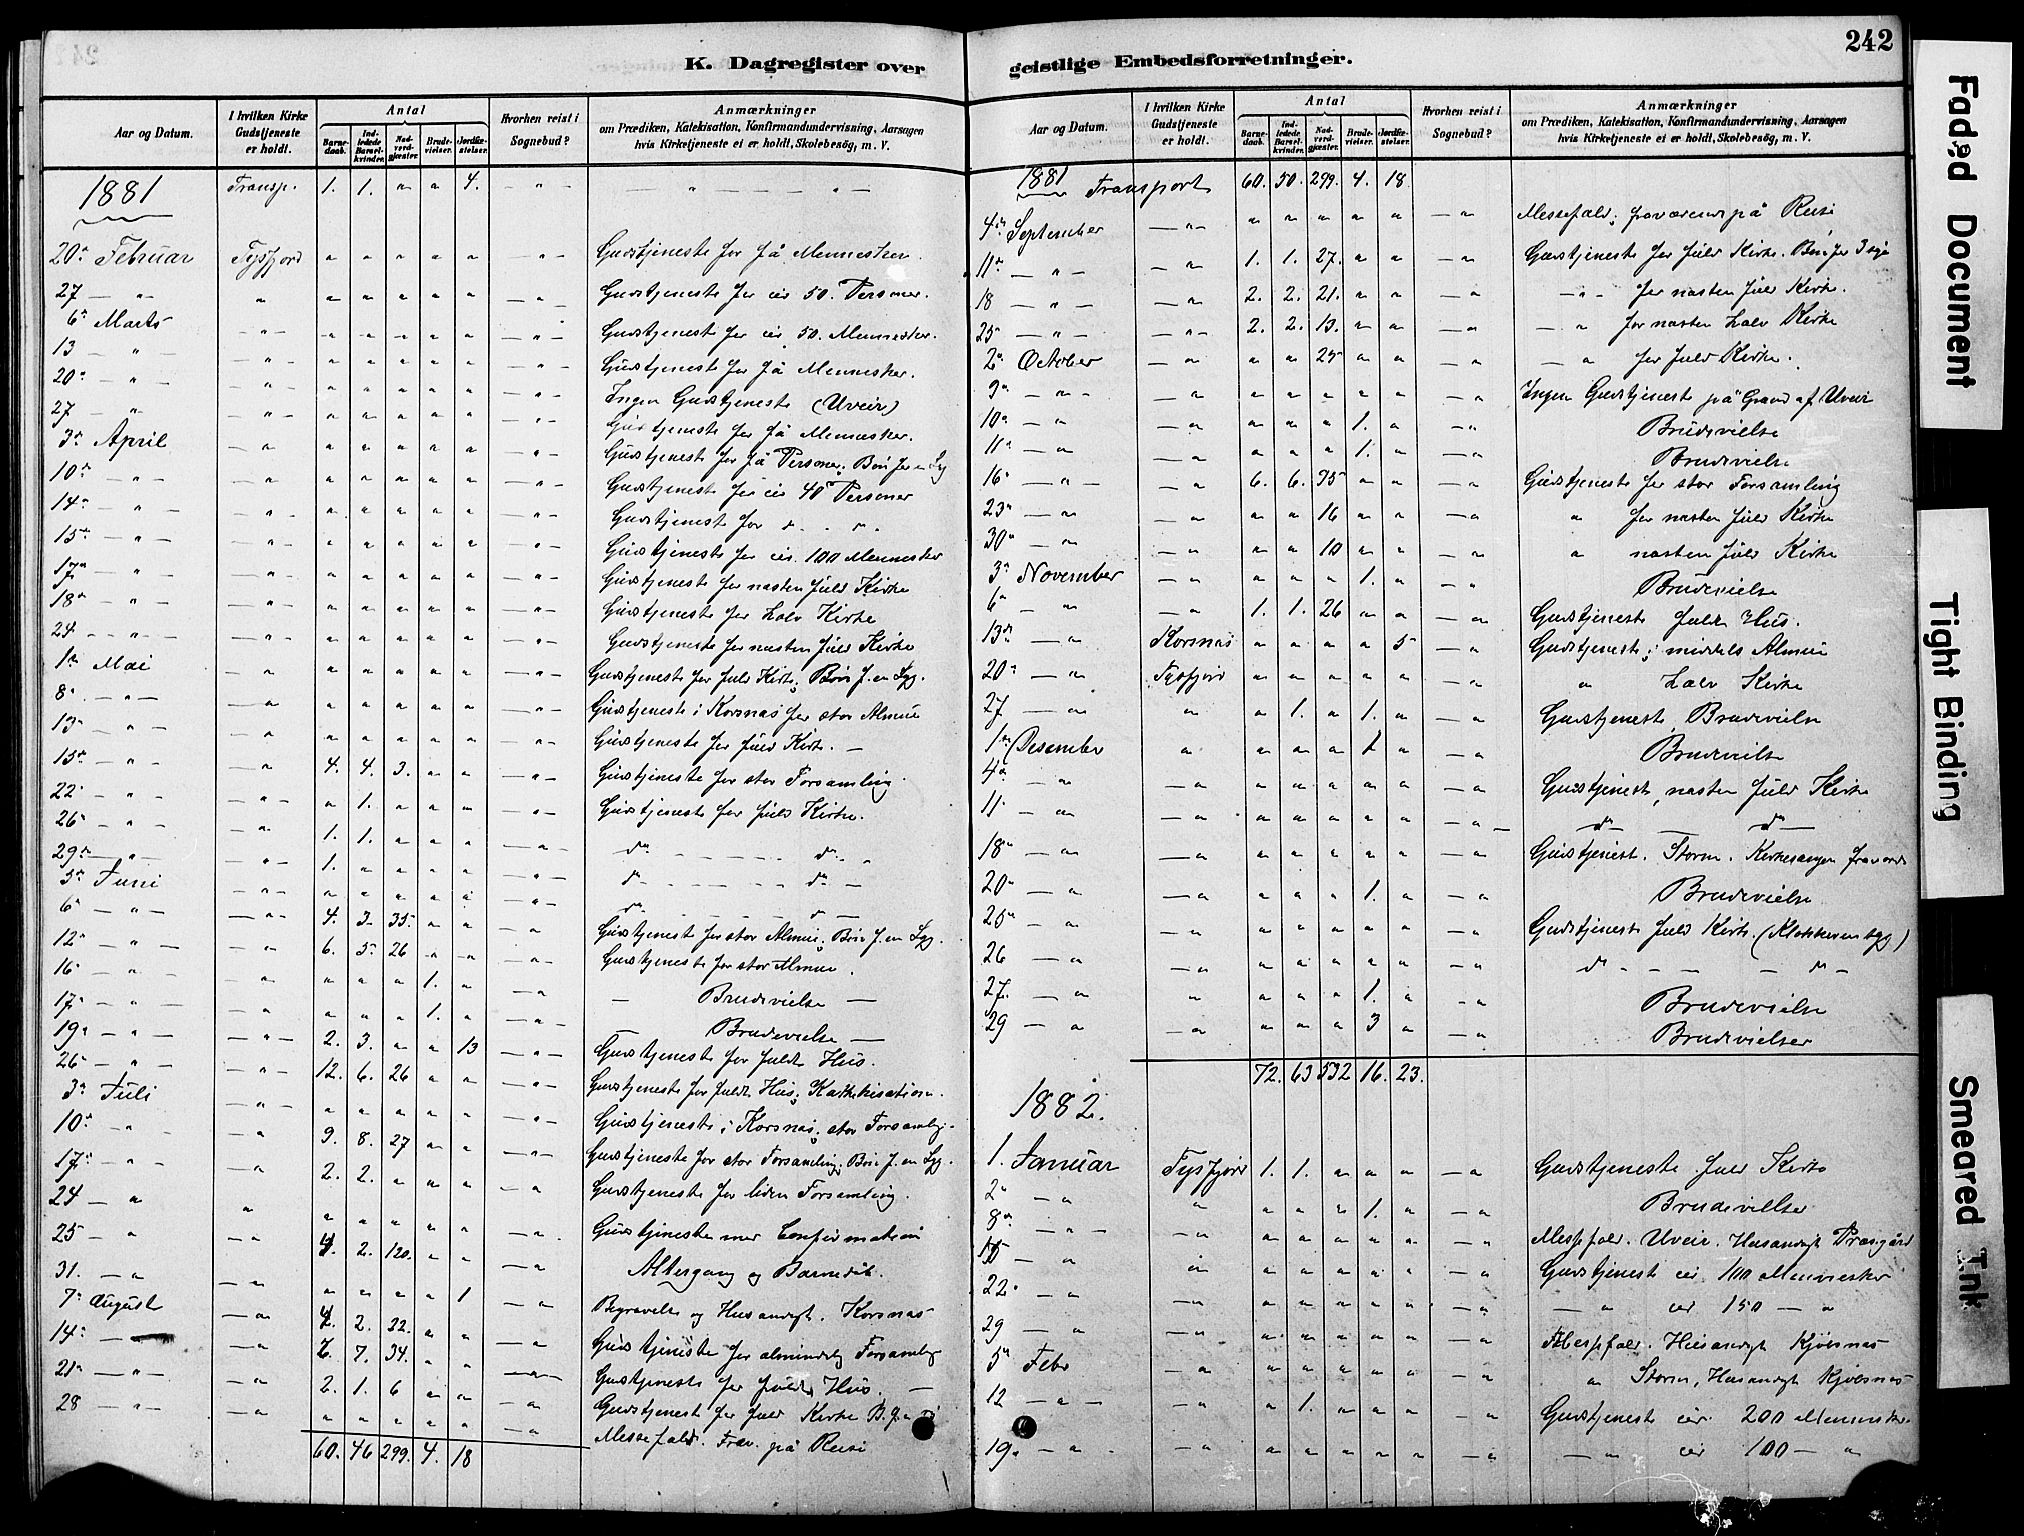 242
K. Dagregister over geistlige Embedsforretninger.
Aar og Datum. I hvilken Kirke Gudstjeneste er holdt. Antal Barnedaab. Indledede Barselkvinder. Nadverdgjester. Brudevielser. Jordfæstelser. Hvorhen reist i Sognebud? Anmærkninger om Prædiken, Katekisation, Konfirmandundervisning, Aarsagen hvis Kirketjeneste ei er holdt, Skolebesøg, m. V.
1881 Transp. 1. 1. " " 4. — " — — " — — — " —
20de Februar Tysfjord " " " " " — " — Gudstjeneste for få Mennesker.
27 — " — " " " " " " — " — Gudstjeneste for cir 50. Personer.
6te Marts — " — " " " " " — " — Gudstjeneste for cir. 50. Mennesker.
13 — " — — " — " " " " " — " — Gudstjeneste for få Mennesker.
20de — " — — " — " " " " " — " — Ingen Gudstjeneste (Uveir)
27 — " — — " — " " " " " — " — Gudstjeneste for få Mennesker.
3de April — " " " " " " — " — Gudstjeneste for få Personer. Bøn for en Syg
10de — " — — " — " " " " " — " — Gudstjeneste for cir 40 Personer
14de — " — — " — " " " " " — " — Gudstjeneste for d. " . "
15de — " — — " — " " " " " — " — Gudstjeneste for cir. 100 Mennesker
17de — " — — " — " " " " " — " — Gudstjeneste for næsten fuld Kirke
18de — " — — " — " " " " " — " — Gudstjeneste for halv Kirke
24 — " — — " — " " " " " — " — Gudstjeneste for næsten fuld Kirke
1ste Mai — " — " " " " " — " — Gudstjeneste for fuld Kirke, Bøn f. en Syg.
8de — " — — " " " " " " — " — Gudstjeneste i Korsnæs for stor Almue
13de — " — — " " " " " " — " — Gudstjeneste for fuld Kirke. —
15de — " — — " 4. 4. 3. " " — " — Gudstjeneste for stor Forsamling.
22de — " — — " — " 1. " " " — " — Gudstjeneste for fuld Kirke.
26de — " — — " 1. 1. " " " — " — do — — — do "
29de — " — — " — 1. " " " " — " — do — — — do —
5te Juni — " — " " " " " — " — do — — — do —
6te — " — — " — 4. 3. 35. " " — " Gudstjeneste for stor Almue, Bøn f. en Syg.
12te — " — — " 6. 5. 26 " " — " — Gudstjeneste for stor Almue.
16 — " — — " " " " 1. " — " — Brudevielse —
17de — " — — " " " " 1. " — " — — Brudevielse —
19de — " — — " — 2. 3. " " 13 — " — Gudstjeneste for fuldt Hus.
26de — " — — " — 12. 6. 26 " " — " — Gudstjeneste for fuldt Hus, Kathekisation.
3de Juli — " — " " " " " — " — Gudstjeneste i Korsnæs, stor Forsamlig.
10de — " — — " 9. 8. 27 " " — " — Gudstjeneste for stor Forsamling, Bøn f. en Syg.
17de — " — — " 2. 2. " " " — " Gudstjeneste for liden Forsamling.
24 — " " " " " " " — " — Gudstjeneste med Confirmation
25 — " — " 4. 2. 120. " " — " Altergang og Barnedåb.
31. — " — " " " " " 1 — " Begravelse og Husandagt. Korsnæs
7de August — " 4. 2. 22. " " — " Gudstjeneste for almindelig Forsamlig
14de — — " 7. 7. 34. " " — " — Gudstjeneste for fuldt Hus. —
21de — " — — " 2. 1. 6 " " — " Gudstjeneste for fuld Kirke B. f. en
28 — " — — " " " " " " — " Messefald. Frav. på Reise
60. 46 299. 4. 18
Aar og Datum. I hvilken Kirke Gudstjeneste er holdt. Antal Barnedaab. Indledede Barselkvinder. Nadverdgjester. Brudevielser. Jordfæstelser. Hvorhen reist i Sognebud? Anmærkninger om Prædiken, Katekisation, Konfirmandundervisning, Aarsagen hvis Kirketjeneste ei er holdt, Skolebesøg, m. V.
1881 Transport 60. 50. 299. 4. 18
4de September — " — " " " " " — " Messefald, fraværende på Reise
11te — " — — " 1. 1. 27. " " — " Gudstjeneste for fuld Kirke. Bøn for 3 syge
18 — " — — " 2. 2. 21. " " — " — " — for næsten fuld Kirke.
25 — " — — " — 2. 2. 13. " " — " — " for næsten halv Kirke
2de October — " " " 25 " " — " — " for fuld Kirke.
9de — " — — " " " " " " — " Ingen Gudstjeneste på Grund af Uveir
10de — " — " " " " 1. " — " Brudevielse
11te — " — " " " " 1. " — " Brudevielse
16de — " — — " 6. 6. 95 " " — " Gudstjeneste for stor Forsamling
23de — " — " " " 16 " " — " " for næsten fuld Kirke
30de — " — " " " 10 " " — " " næsten fuld Kirke
3de November — " " " " 1. " — " Brudevielse
6te — " — " 1. 1. 26 " " — " Gudstjeneste fuldt Hus.
13de — " Korsnæs " " " " 5 — " Gudstjeneste, middels Almue
20de — " Tysfjord " " " " " — " " halv Kirke
27 — " " " 1. " 1. " — " Gudstjeneste, Brudevielse
1ste Desember " " " " 1 " — " Brudevielse
4de — " — " " " " " " — " Gudstjeneste, næsten fuld Kirke
11 — " — " " " " " " — " — do — do —
18de — " — " " " " " " — " Gudstjenest. Storm. Kirkesangen fraværende
20de — " — " " " " 1. " — " Brudevielse
25de — " — " " " " " " — " Gudstjeneste fuld Kirke. (Klokkeren syg)
26 — " — " " " " " " — " do — — — do —
27. — " " " " " 1. " — " Brudevielse
29 — " — " " " " 3 " — " Brudevielser
72. 63 532 16. 23.
1882.
1. Januar Tysfjord 1. 1. " " " — " Gudstjeneste fuld Kirke
2de — " " " " " 1. " — " Brudevielse
8de — " — — " " " " " " — " Messefald. Uveir. Husandagt Præsegård
15 — " " " " " " " — " Gudstjeneste cir 100 Mennesker
22de — " — " " " " " " — " — " cir 150 — "
29 — " — " " " " " " — " Messefald. Husandagt Kjøbsnæs
5te Febr — " " " " " " — " " Storm, Husandagt Kjøbsnæs
12 — " — — " " 1. " " " — " Gudstjeneste cir. 200 Mennesker.
19de — " — — " " " " " " — " — " cir 100 — "
Faded Document
Tight Binding
Smeared Ink